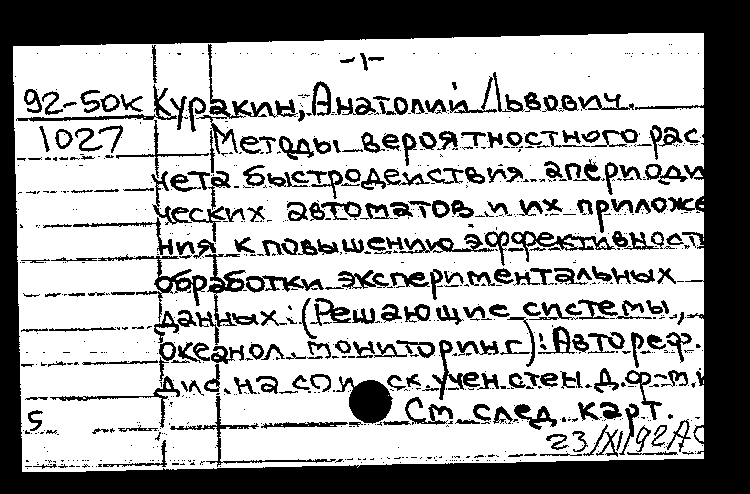 -1-
92-50к Куракин, Анатолий Львович.
1027 Методы вероятностного рас-
чета быстродействия апериоди
ческих автоматов и их приложе
ния к повышению эффективност
обработки экспериментальных
данных: (Решающие системы,
океанол. мониторинг): Автореф.
дис. на соиск. учен. степ. д. ф-м.н
5 См. след. карт.
23/XI/92